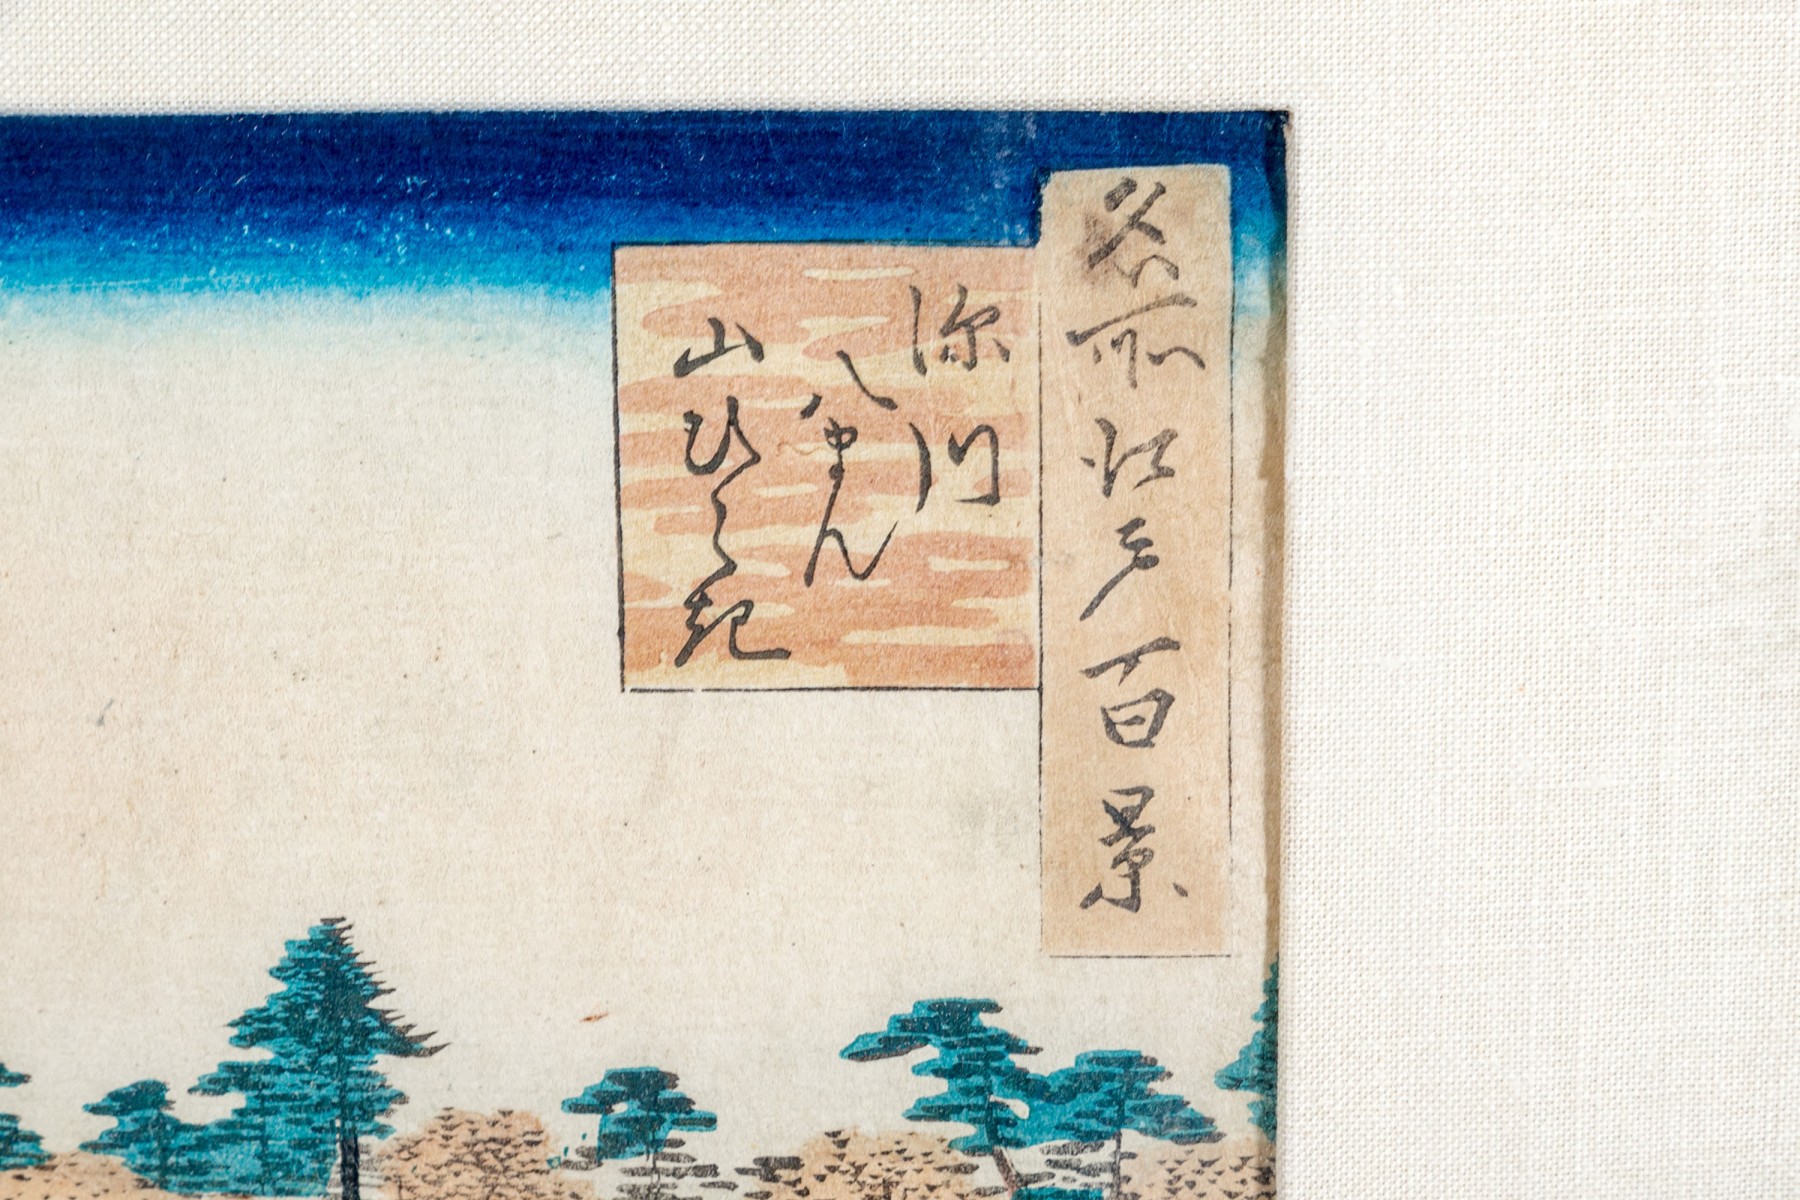 名所江戸百景
深川
八まん
山ひらき